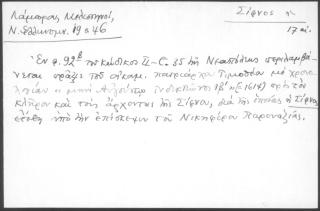 Λάμπρος, Νέος Ελληνομν. 19 σ 46
Σίφνος
17 αι.
Ἐν φ. 92β τοῦ κώδικος II-C-35 τῆς Νεαπόλεως περιλαμβά-
νεται πρᾶξις τοῦ οἰκουμ. πατριάρχου Τιμοθέου μὲ χρονο-
λογίαν μηνὶ Αὐγούστῳ ἰνδικτιῶνος ιβ' (=1614) πρὸς τὸν
κλῆρον καὶ τοὺς ἄρχοντας τῆς Σίφνου, διὰ τῆς ὁποίας ἡ Σίφνος
ἐτέθη ὑπὸ τὴν ἐπίσκεψιν τοῦ Νικηφόρου Παροναξίας.